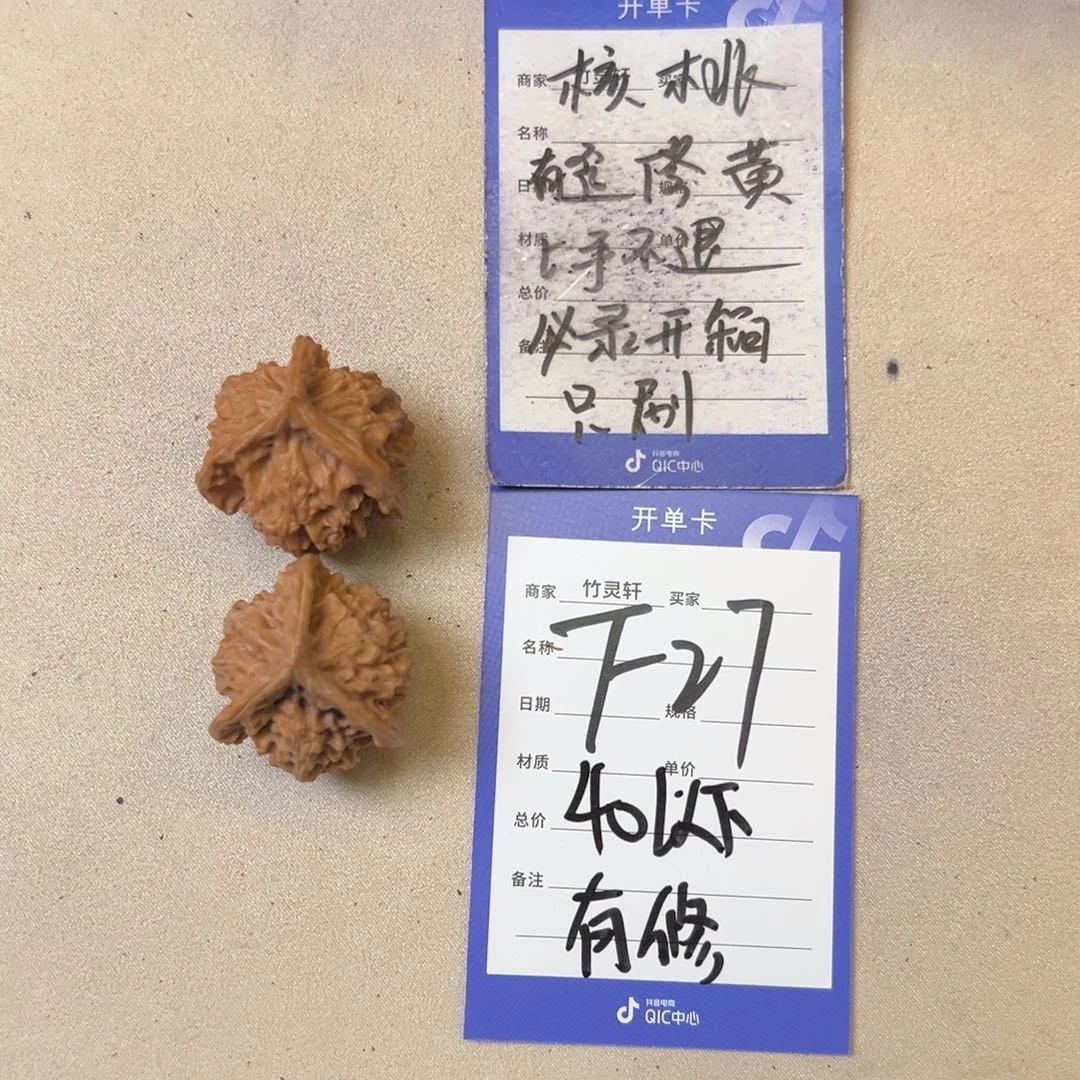 开单卡
商家 竹灵轩 买家
核桃
名称
有 修 黄
日期 规格
材质 单价
上手不退
总价
必录开箱
备注
只刷
抖音电商
QIC中心
开单卡
商家 竹灵轩 买家
名称
F27
日期 规格
材质 单价
40以下
总价
备注
有修,
抖音电商
QIC中心